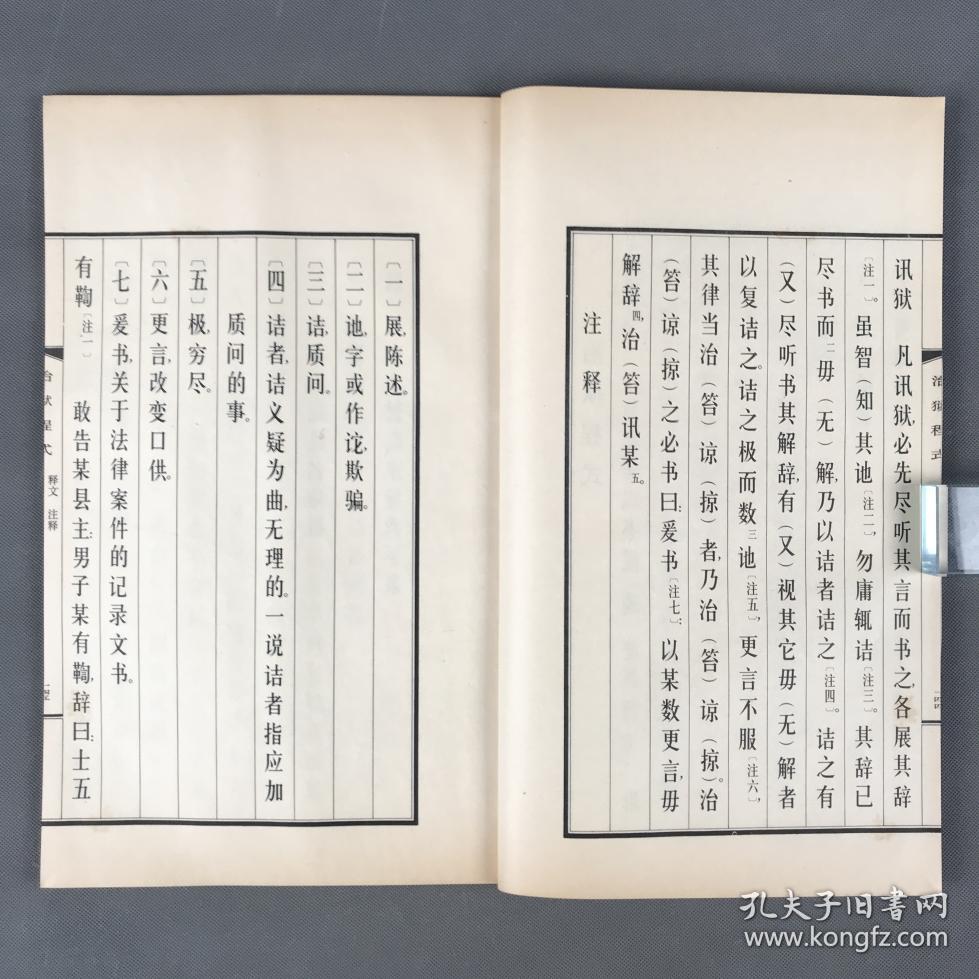 讯狱　凡讯狱,必先尽听其言而书之,各展其辞
〔注一〕。虽智（知）其訑〔注二〕,勿庸辄诘〔注三〕。其辞已
尽书而二毋（无）解,乃以诘者诘之〔注四〕。诘之有
（又）尽听书其解辞,有（又）视其它毋（无）解者
以复诘之。诘之极而数三訑〔注五〕,更言不服〔注六〕,
其律当治（笞）谅（掠）者,乃治（笞）谅（掠）。治
（笞）谅（掠）之必书曰:爰书〔注七〕:以某数更言,毋
解辞四,治（笞）讯某五。
注释
治狱程式
一四四
〔一〕展,陈述。
〔二〕訑,字或作诧,欺骗。
〔三〕诘,质问。
〔四〕诘者,诘义疑为曲,无理的。一说诘者指应加
质问的事。
〔五〕极,穷尽。
〔六〕更言,改变口供。
〔七〕爰书,关于法律案件的记录文书。
有鞫〔注一〕　敢告某县主:男子某有鞫,辞曰:士五
治狱程式　释文　注释
一四五
孔夫子旧书网
www.kongfz.com